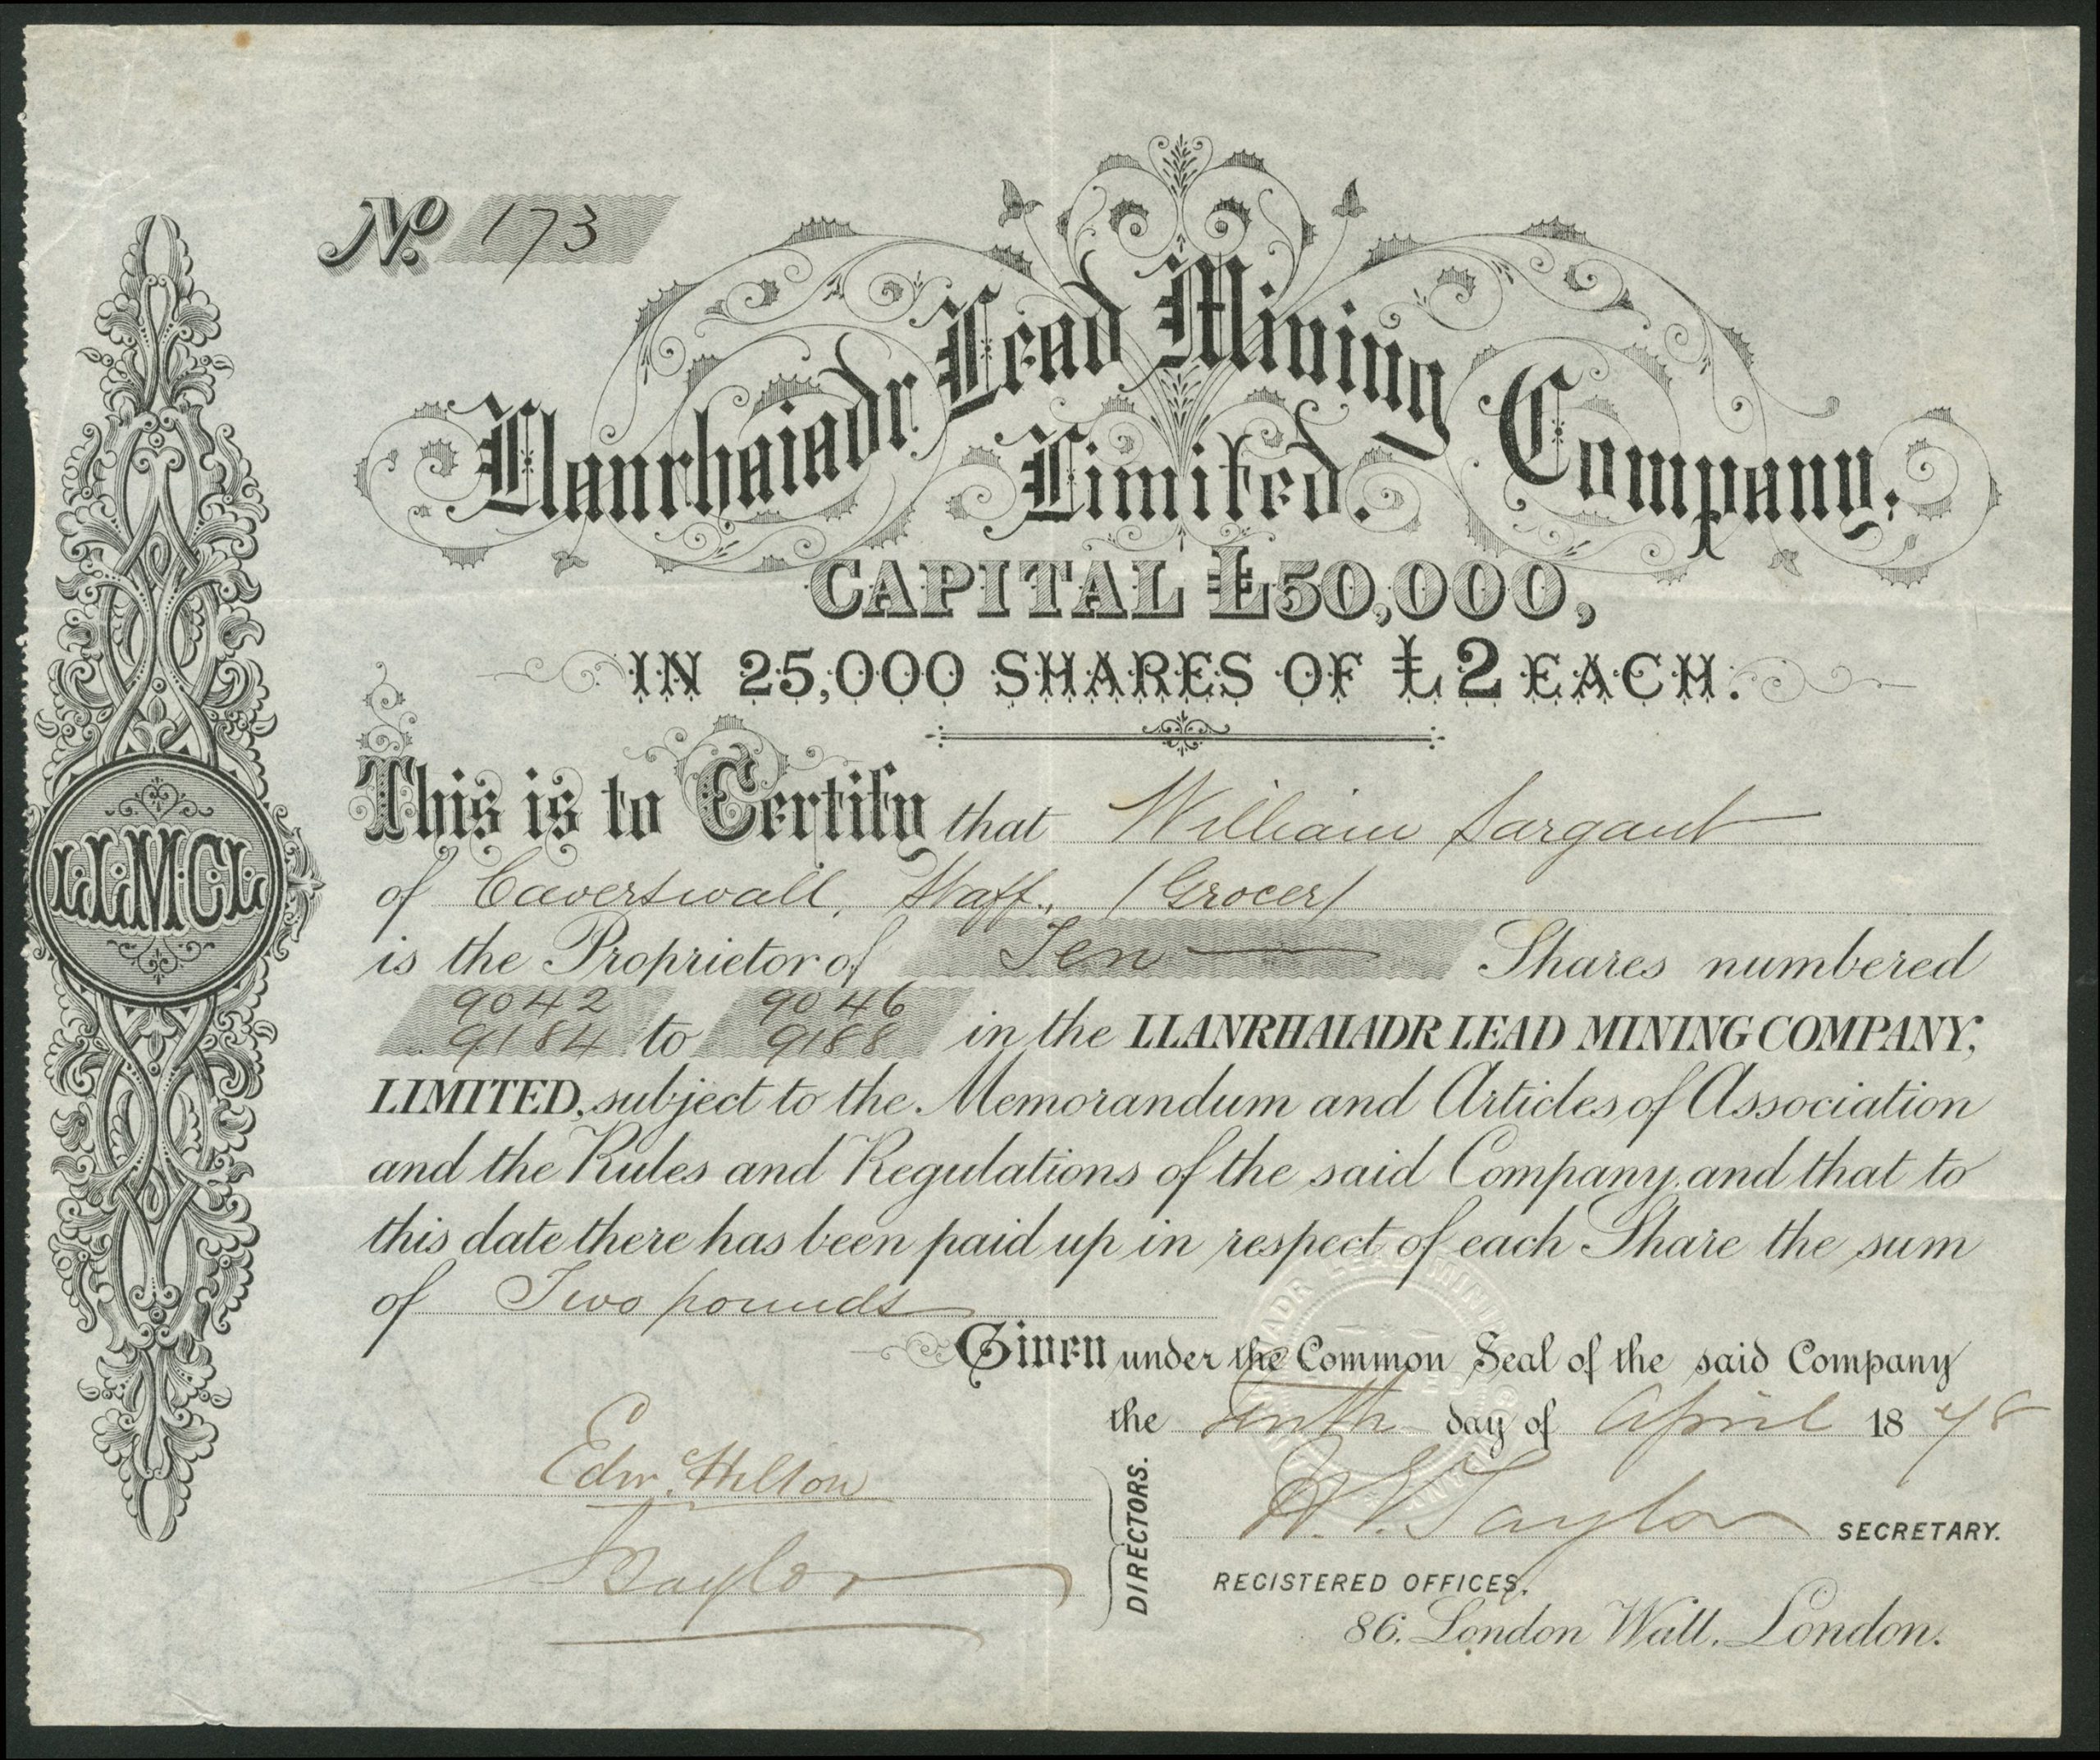 No. 173
Llanrhaiadr Lead Mining Company,
Limited.
CAPITAL £50,000,
IN 25,000 SHARES OF £2 EACH.
This is to Certify that William Sargant
of Caverswall, Staff., (Grocer)
is the Proprietor of Ten Shares numbered
9042 9046
9184 to 9188 in the LLANRHAIADR LEAD MINING COMPANY,
LIMITED, subject to the Memorandum and Articles of Association
and the Rules and Regulations of the said Company, and that to
this date there has been paid up in respect of each Share the sum
of Two pounds
Given under the Common Seal of the said Company
the Tenth day of April 1878
Edw. Hilton
Taylor
DIRECTORS.
Taylor SECRETARY.
REGISTERED OFFICES,
86, London Wall, London.
LLMCL